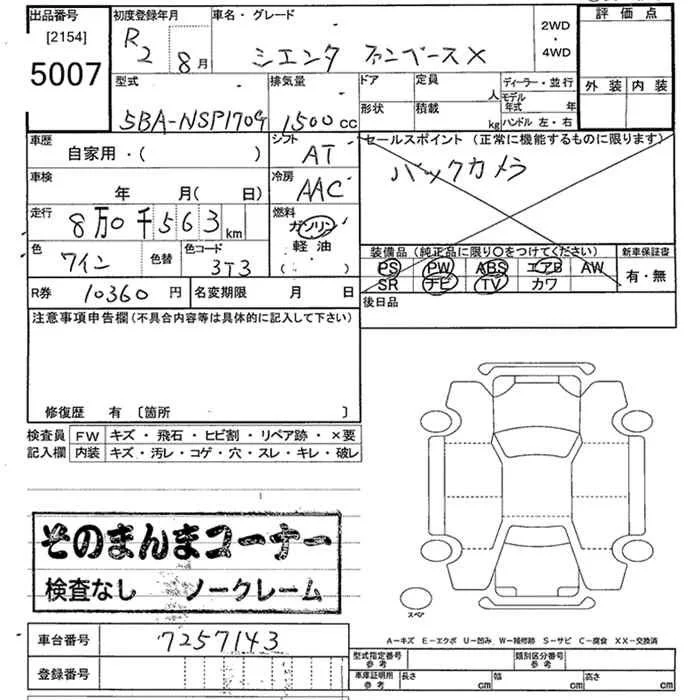 出品番号 初度登録年月 車名・グレード 2WD・4WD 評価点
[2154] R2 8月 シエンタ ファンベースX
5007 外装 内装
型式 排気量 ドア 定員 人 ディーラー・並行
5BA-NSP170G 1500cc 形状 積載 kg モデル年式 年
ハンドル 左・右
車歴 シフト セールスポイント (正常に機能するものに限ります)
自家用・( ) AT バックカメラ
車検 冷房
年 月( 日) AAC
走行 燃料
8万0千563km ガソリン
軽油
( )
色 色替 色コード
ワイン 3T3
装備品 (純正品に限り○をつけてください) 新車保証書
PS PW ABS エアB AW 有・無
SR ナビ TV カワ
R券 10360円 名変期限 月 日 後日品
注意事項申告欄 (不具合内容等は具体的に記入して下さい)
修復歴 有 〔箇所 〕
検査員 FW キズ・飛石・ヒビ割・リペア跡・×要
記入欄 内装 キズ・汚レ・コゲ・穴・スレ・キレ・破レ
そのまんまコーナー
検査なし ノークレーム
スペア
A-キズ E-エクボ U-凹み W-補修跡 S-サビ C-腐食 XX-交換済
車台番号 7257143
型式指定番号 参考 類別区分番号 参考
登録番号 車庫証明用 参考 長さ cm 幅 cm 高さ cm